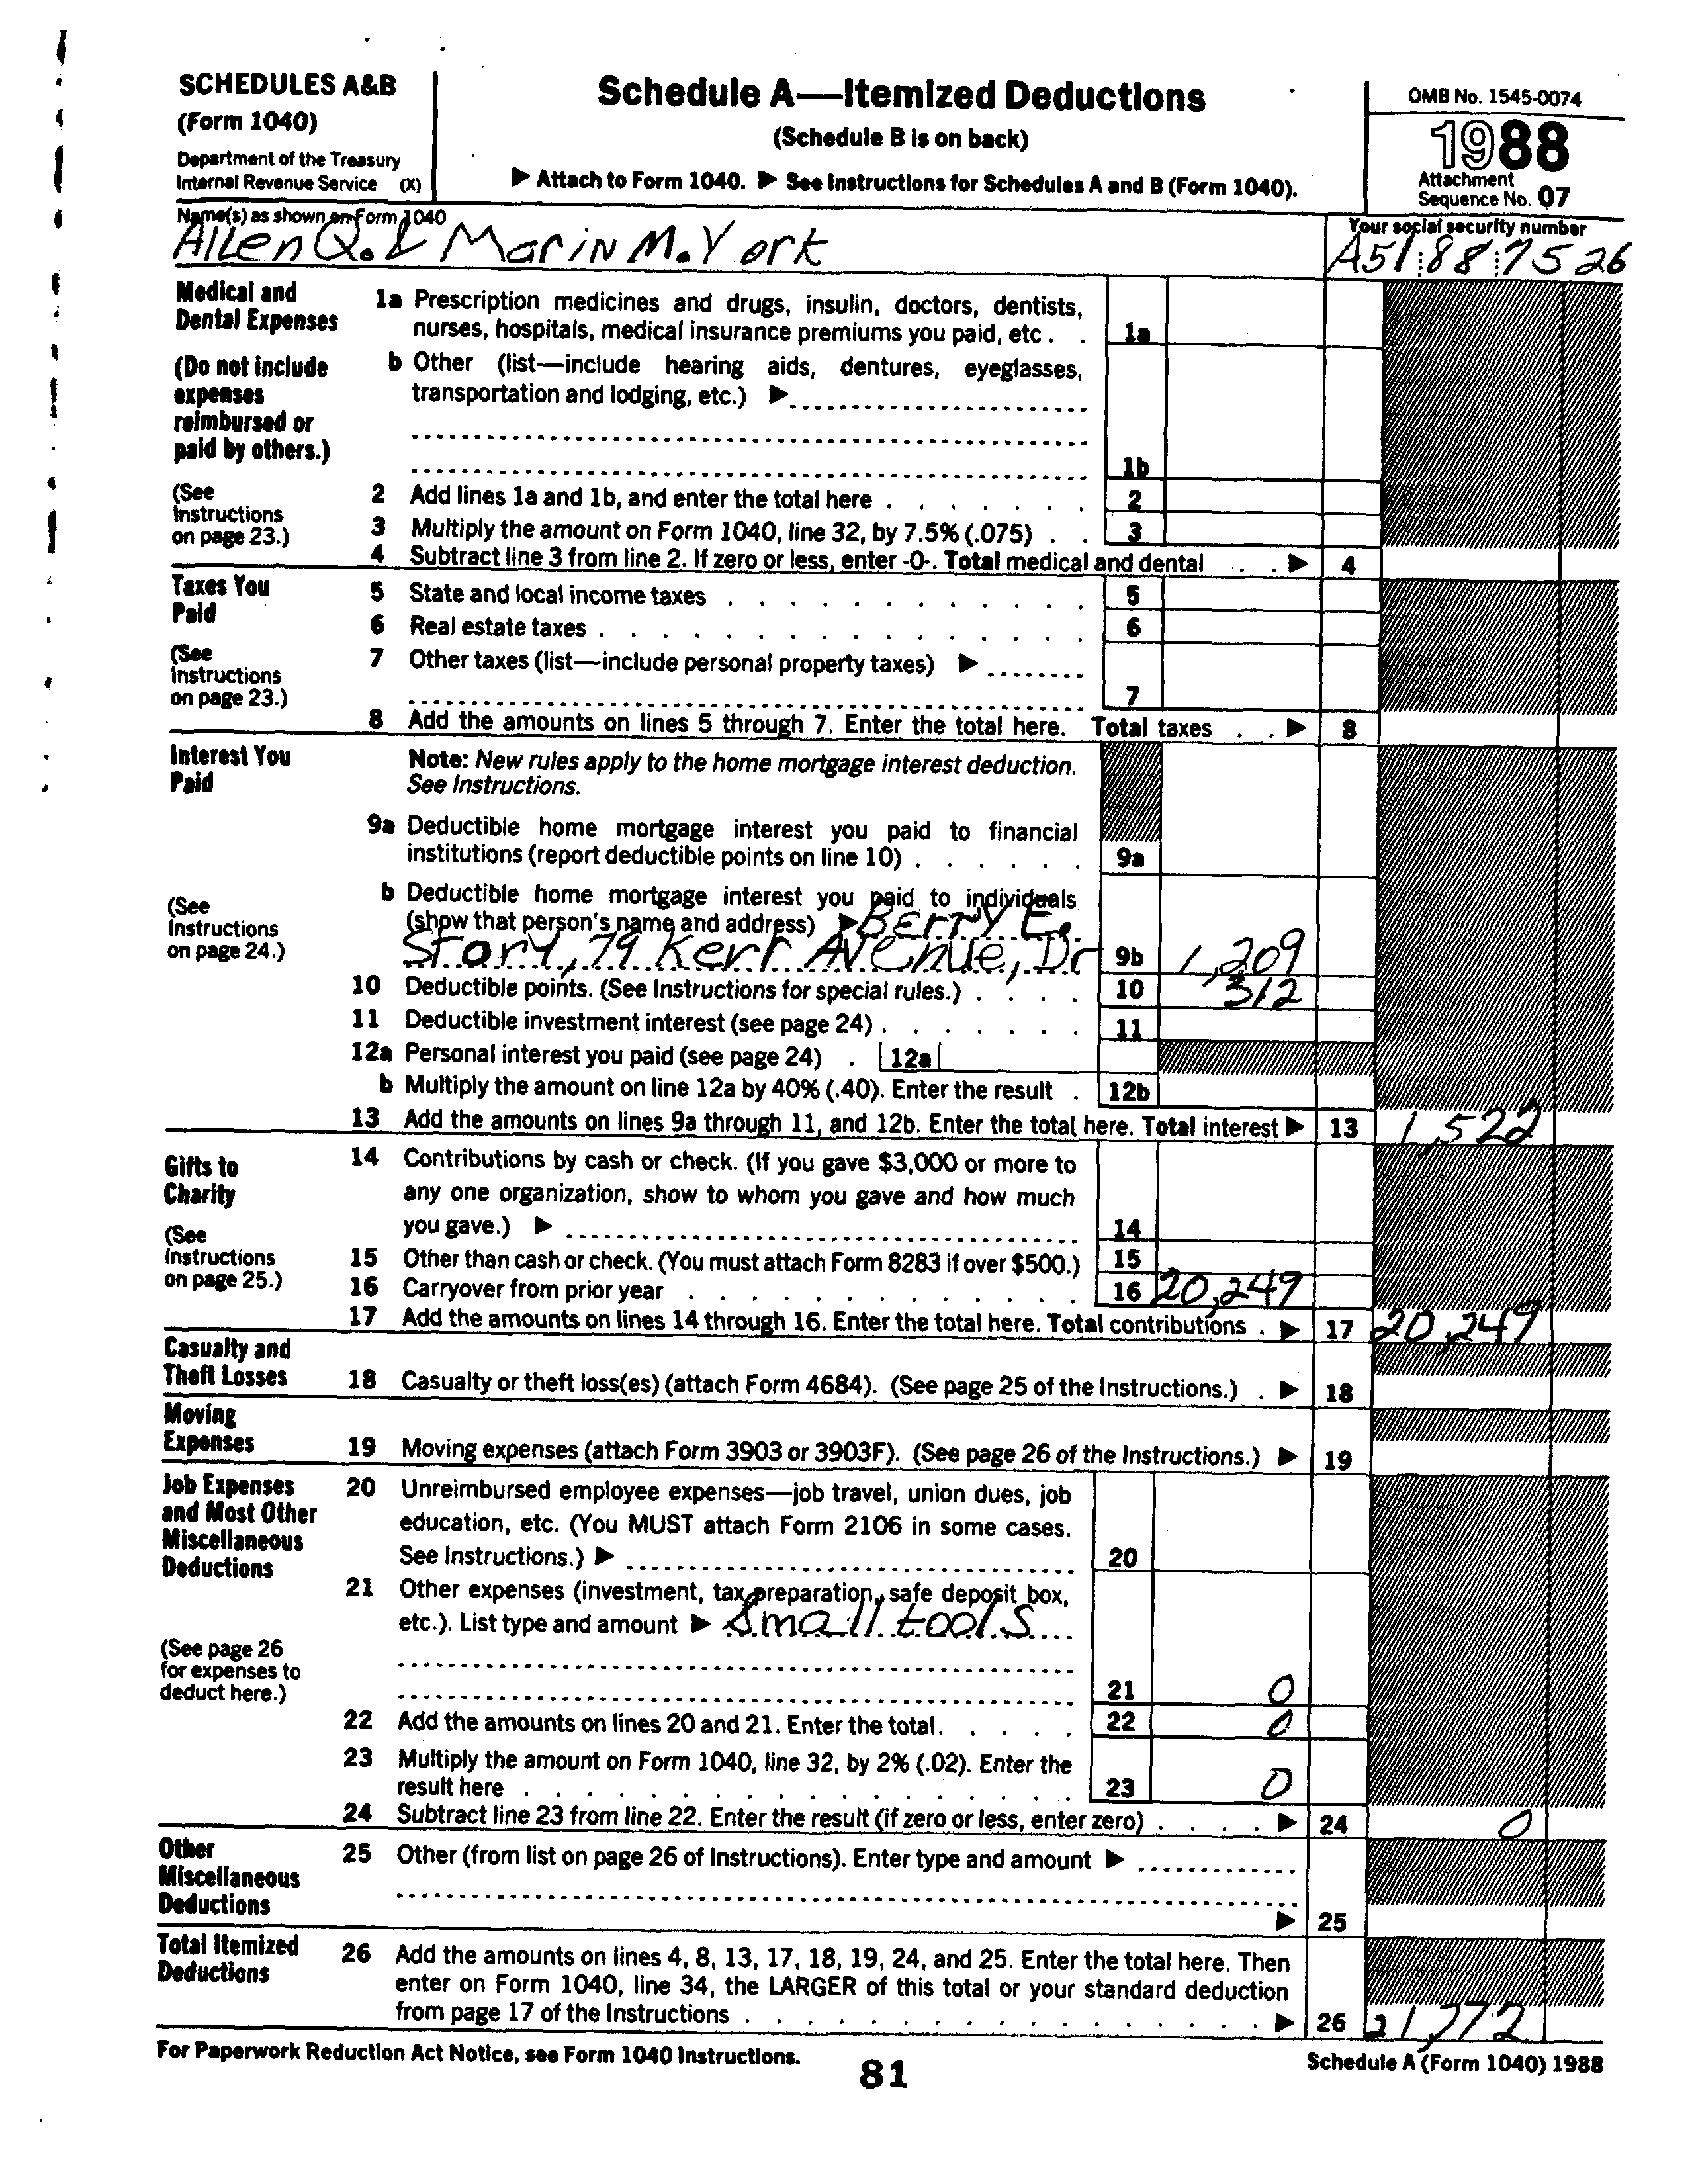 SCHEDULES A&B
(Form 1040)
Department of the Treasury
Internal Revenue Service (X)
Schedule A—Itemized Deductions
(Schedule B is on back)
▶ Attach to Form 1040. ▶ See Instructions for Schedules A and B (Form 1040).
OMB No. 1545-0074
1988
Attachment
Sequence No. 07
Name(s) as shown on Form 1040
Allen Q. & Marin M. York
Your social security number
A51 88 7526
Medical and
Dental Expenses
(Do not include
expenses
reimbursed or
paid by others.)
(See
Instructions
on page 23.)
1a Prescription medicines and drugs, insulin, doctors, dentists,
nurses, hospitals, medical insurance premiums you paid, etc . . 1a
b Other (list—include hearing aids, dentures, eyeglasses,
transportation and lodging, etc.) ▶
1b
2 Add lines 1a and 1b, and enter the total here . . . . . . . 2
3 Multiply the amount on Form 1040, line 32, by 7.5% (.075) . . 3
4 Subtract line 3 from line 2. If zero or less, enter -0-. Total medical and dental . . ▶ 4
Taxes You
Paid
(See
Instructions
on page 23.)
5 State and local income taxes . . . . . . . . . . . 5
6 Real estate taxes . . . . . . . . . . . . . . 6
7 Other taxes (list—include personal property taxes) ▶
7
8 Add the amounts on lines 5 through 7. Enter the total here. Total taxes . . ▶ 8
Interest You
Paid
(See
Instructions
on page 24.)
Note: New rules apply to the home mortgage interest deduction.
See Instructions.
9a Deductible home mortgage interest you paid to financial
institutions (report deductible points on line 10) . . . . . . 9a
b Deductible home mortgage interest you paid to individuals
(show that person's name and address) ▶ Berry E.
Story, 79 Kerr Avenue, Dr 9b 1,209
10 Deductible points. (See Instructions for special rules.) . . . . 10 312
11 Deductible investment interest (see page 24) . . . . . . . 11
12a Personal interest you paid (see page 24) . 12a
b Multiply the amount on line 12a by 40% (.40). Enter the result . 12b
13 Add the amounts on lines 9a through 11, and 12b. Enter the total here. Total interest ▶ 13 1,522
Gifts to
Charity
(See
Instructions
on page 25.)
14 Contributions by cash or check. (If you gave $3,000 or more to
any one organization, show to whom you gave and how much
you gave.) ▶ 14
15 Other than cash or check. (You must attach Form 8283 if over $500.) 15
16 Carryover from prior year . . . . . . . . . . . . 16 20,249
17 Add the amounts on lines 14 through 16. Enter the total here. Total contributions . ▶ 17 20,249
Casualty and
Theft Losses
18 Casualty or theft loss(es) (attach Form 4684). (See page 25 of the Instructions.) . ▶ 18
Moving
Expenses
19 Moving expenses (attach Form 3903 or 3903F). (See page 26 of the Instructions.) ▶ 19
Job Expenses
and Most Other
Miscellaneous
Deductions
(See page 26
for expenses to
deduct here.)
20 Unreimbursed employee expenses—job travel, union dues, job
education, etc. (You MUST attach Form 2106 in some cases.
See Instructions.) ▶ 20
21 Other expenses (investment, tax preparation, safe deposit box,
etc.). List type and amount ▶ Small tools
21 0
22 Add the amounts on lines 20 and 21. Enter the total. . . . . 22 0
23 Multiply the amount on Form 1040, line 32, by 2% (.02). Enter the
result here . . . . . . . . . . . . . . . . . 23 0
24 Subtract line 23 from line 22. Enter the result (if zero or less, enter zero) . . . . . ▶ 24 0
Other
Miscellaneous
Deductions
25 Other (from list on page 26 of Instructions). Enter type and amount ▶
▶ 25
Total Itemized
Deductions
26 Add the amounts on lines 4, 8, 13, 17, 18, 19, 24, and 25. Enter the total here. Then
enter on Form 1040, line 34, the LARGER of this total or your standard deduction
from page 17 of the Instructions . . . . . . . . . . . . . . . . . ▶ 26 21,772
For Paperwork Reduction Act Notice, see Form 1040 Instructions.
81
Schedule A (Form 1040) 1988